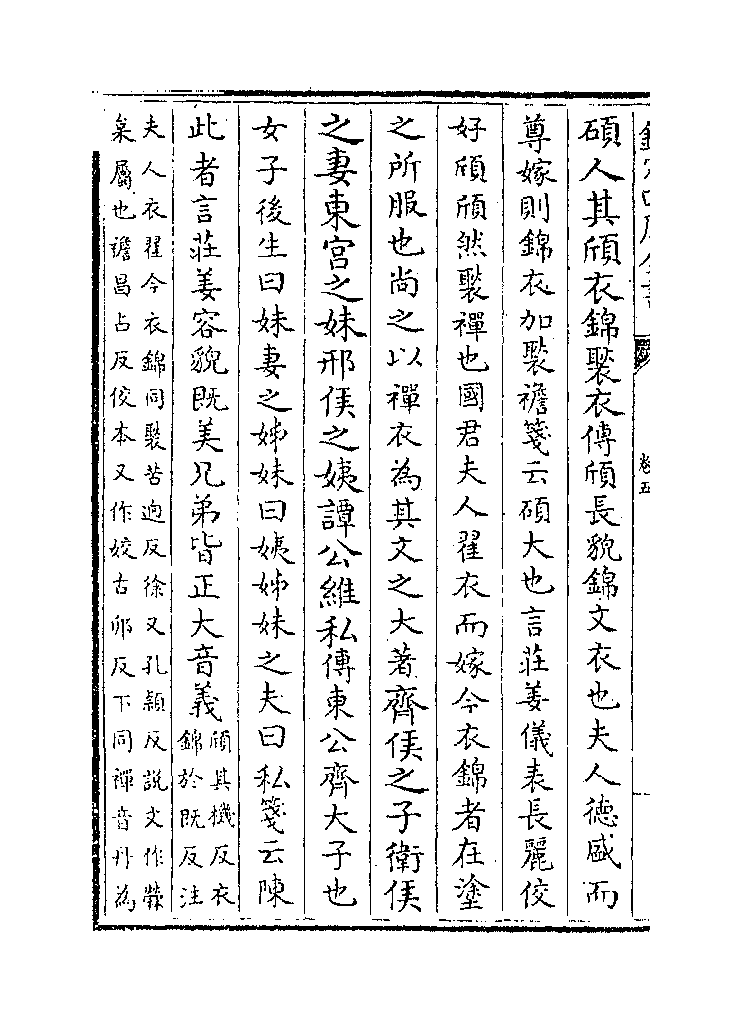 欽定四庫全書
卷五
碩人其頎衣錦褧衣傳頎長貌錦文衣也夫人德盛而
尊嫁則錦衣加褧襜箋云碩大也言莊姜儀表長麗佼
好頎頎然褧襌也國君夫人翟衣而嫁今衣錦者在塗
之所服也尚之以襌衣為其文之大著齊侯之子衛侯
之妻東宫之妹邢侯之姨譚公維私傳東公齊大子也
女子後生曰妹妻之姊妹曰姨姊妹之夫曰私箋云陳
此者言莊姜容貌既美兄弟皆正大音義頎其機反衣
錦於既反注
夫人衣翟今衣錦同褧苦迥反徐又孔穎反説文作檾
枲屬也襜昌占反佼本又作姣古卯反下同襌音丹為